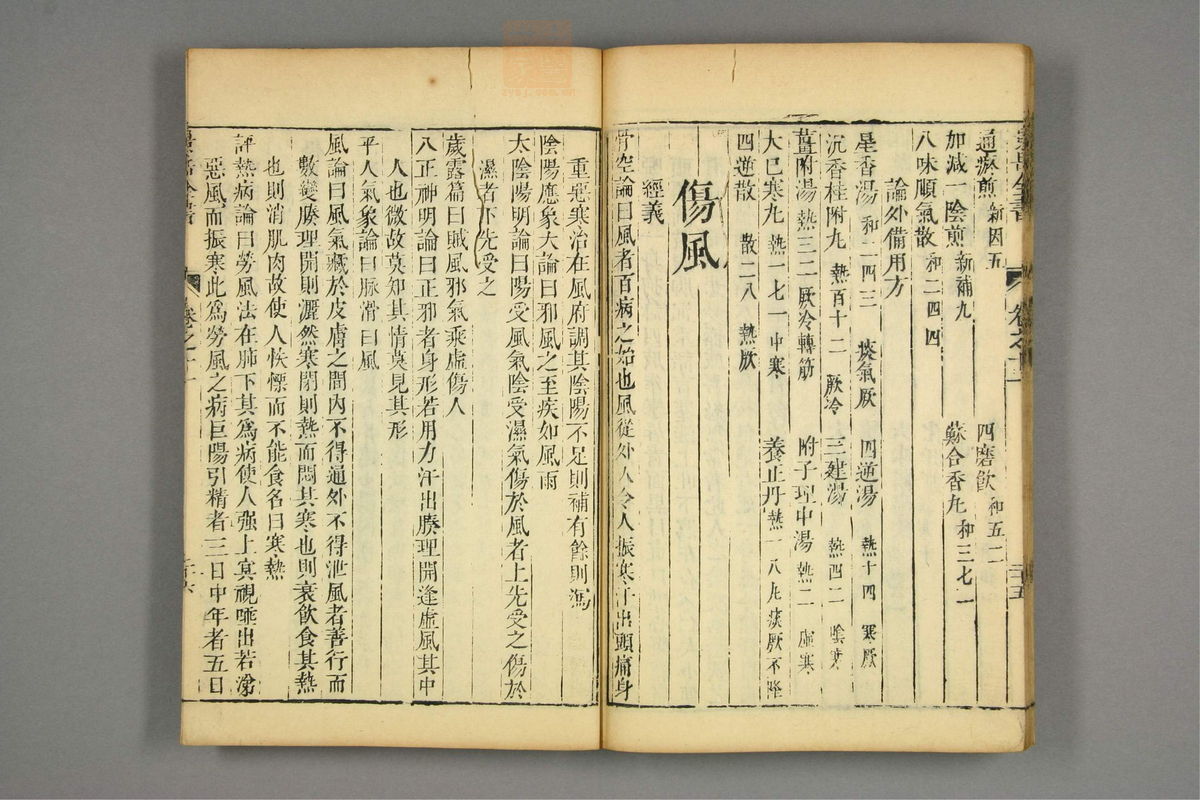 通瘀煎 新因五 四磨飲 和五二
加減一陰煎 新補九 蘇合香丸 和三七一
八味順氣散 和二四四
論外備用方
星香湯 和二四三 痰氣厥 四逆湯 熱十四 寒厥
沉香桂附丸 熱百十二 厥冷 三建湯 熱四二 陰寒
薑附湯 熱三二 厥冷轉筋 附子理中湯 熱二 虛寒
大已寒丸 熱一七一 中寒 養正丹 熱一八九 痰厥不降
四逆散 散二八 熱厥
傷風
經義
骨空論曰風者百病之始也風從外入令人振寒汗出頭痛身
重惡寒治在風府調其陰陽不足則補有餘則瀉
陰陽應象大論曰邪風之至疾如風雨
太陰陽明論曰陽受風氣陰受濕氣傷於風者上先受之傷於
濕者下先受之
歲露篇曰賊風邪氣乘虛傷人
八正神明論曰正邪者身形若用力汗出腠理開逢虛風其中
人也微故莫知其情莫見其形
平人氣象論曰脈滑曰風
風論曰風氣藏於皮膚之間內不得通外不得泄風者善行而
數變腠理開則灑然寒閉則熱而悶其寒也則衰飲食其熱
也則消肌肉故使人怢慄而不能食名曰寒熱
評熱病論曰勞風法在肺下其為病使人强上冥視唾出若涕
惡風而振寒此為勞風之病巨陽引精者三日中年者五日